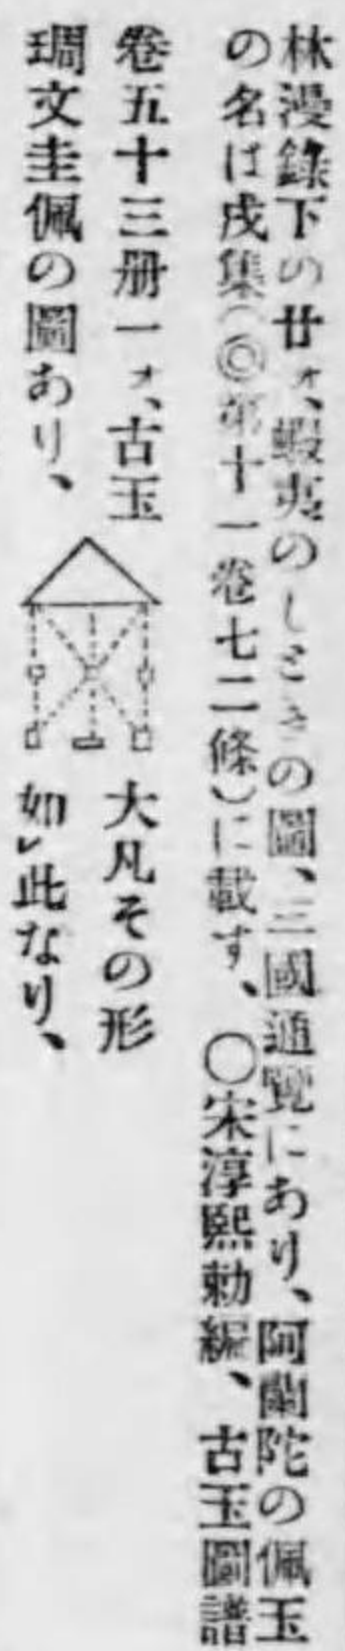 林漫錄下の廿ォ、蝦夷のしときの圖、三國通覽にあり、阿蘭陀の佩玉
の名は戌集(◎第十一卷七二條)に載す、〇宋淳熙勅編、古玉圖譜
卷五十三册一ォ、古玉
琱文圭佩の圖あり、
大凡その形
如レ此なり、